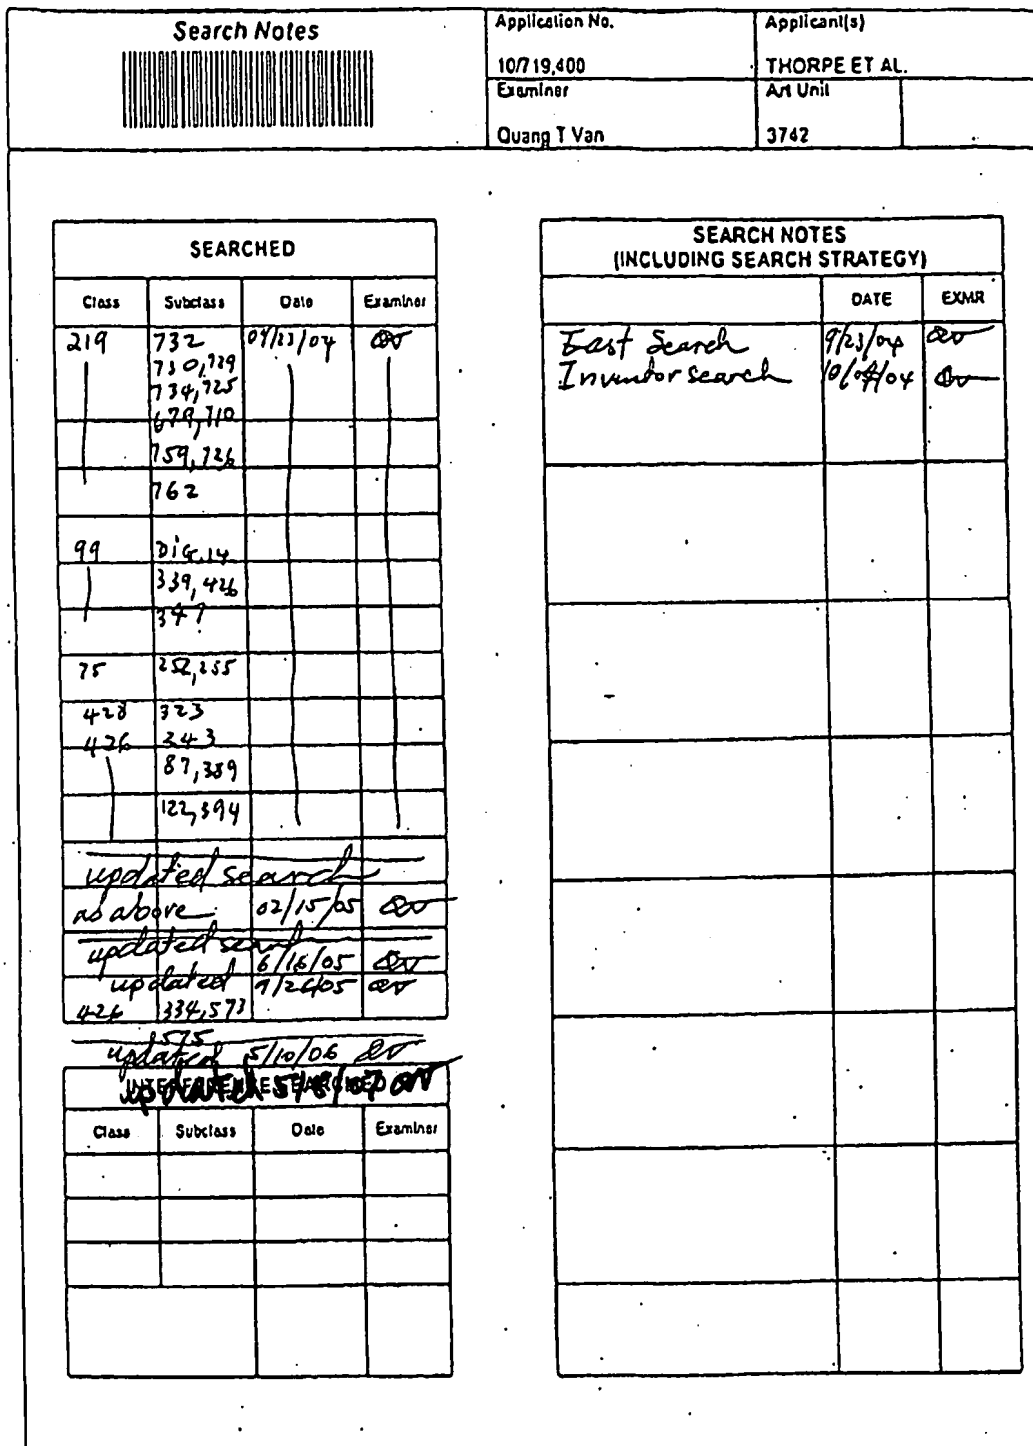 Search Notes
Application No.
Applicant(s)
10/719,400
THORPE ET AL.
Examiner
Art Unit
Quang T Van
3742
SEARCHED
Class Subclass Date Examiner
219 732 09/23/04 QV
730,729
734,725
679,710
759,726
762
99 DIG.14
339,426
347
75 252,255
428 323
426 243
87,389
122,394
updated search
as above 02/15/05 QV
updated search
6/16/05 QV
updated 9/26/05 QV
426 334,573
575
updated 5/10/06 QV
INTERFERENCE SEARCHED
updated QV
Class Subclass Date Examiner
SEARCH NOTES
(INCLUDING SEARCH STRATEGY)
DATE EXMR
East Search 9/23/04 QV
Inventor search QV